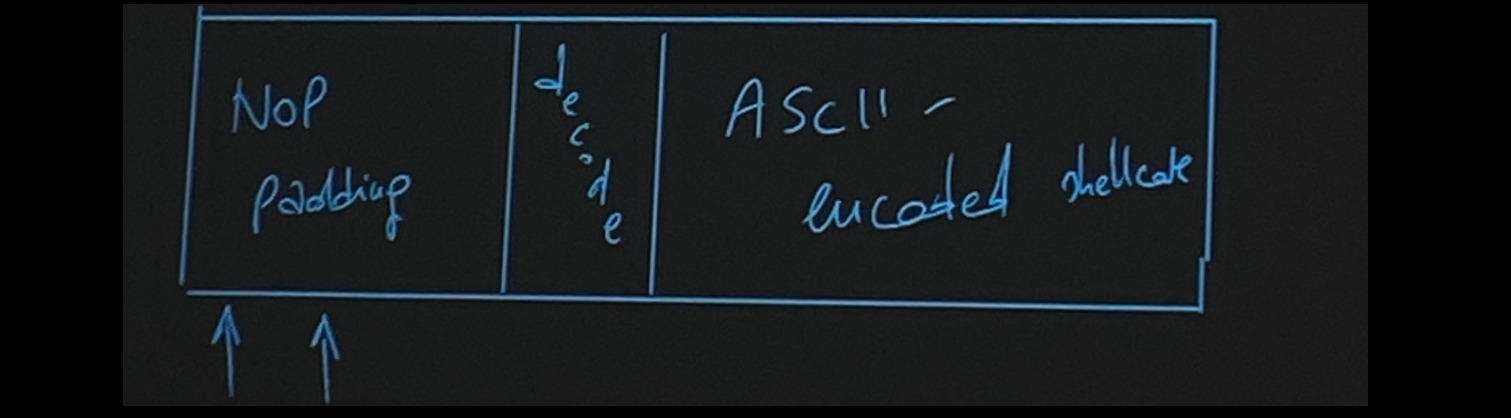 NOP
padding
decode
ASCII -
encoded shellcode